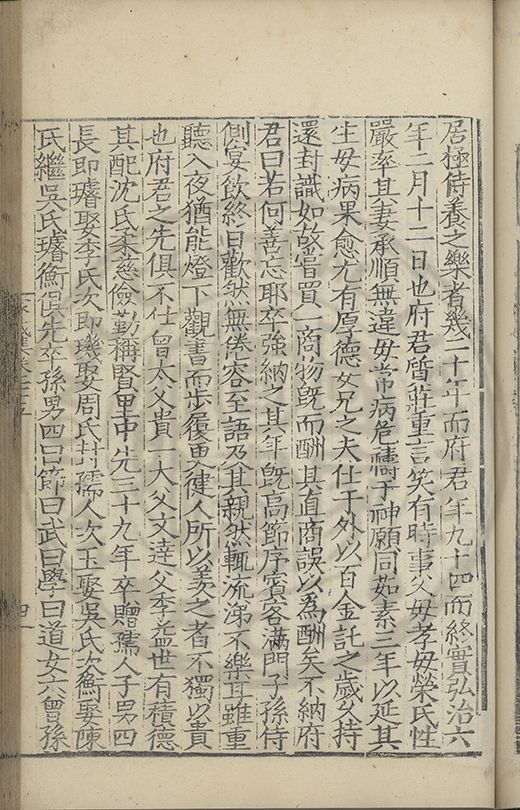 居極侍養之樂者幾二十年而府君年九十四而終實弘治六
年二月十二日也府君簡莊重言笑有時事父母孝母榮氏性
嚴率其妻承順無違母常病危禱于神願同茹素三年以延其
生母病果愈尤有厚德女兄之夫仕于外以百金託之歲久持
還封識如故嘗買一商物旣而酬其直商誤以爲酬矣不納府
君曰若何善忘耶卒強納之其年旣高節序賓客滿門子孫侍
側宴飲終日歡然無倦容至語及其親然輒流涕不樂耳雖重
聽入夜猶能燈下觀書而步履更健人所以羨之者不獨以貴
也府君之先俱不仕曾太父貴一大父文達父季益世有積德
其配沈氏柔慈儉勤稱賢里中先三十九年卒贈孺人子男四
長即璿娶李氏次即璣娶周氏封孺人次玉娶吳氏次衡娶陳
氏繼吳氏璿衡俱先卒孫男四曰節曰武曰學曰道女六曾孫